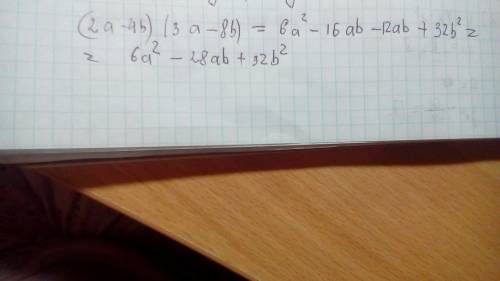 (2a-4b) (3a-8b) = 6a² - 16ab - 12ab + 32b² =
= 6a² - 28ab + 32b²